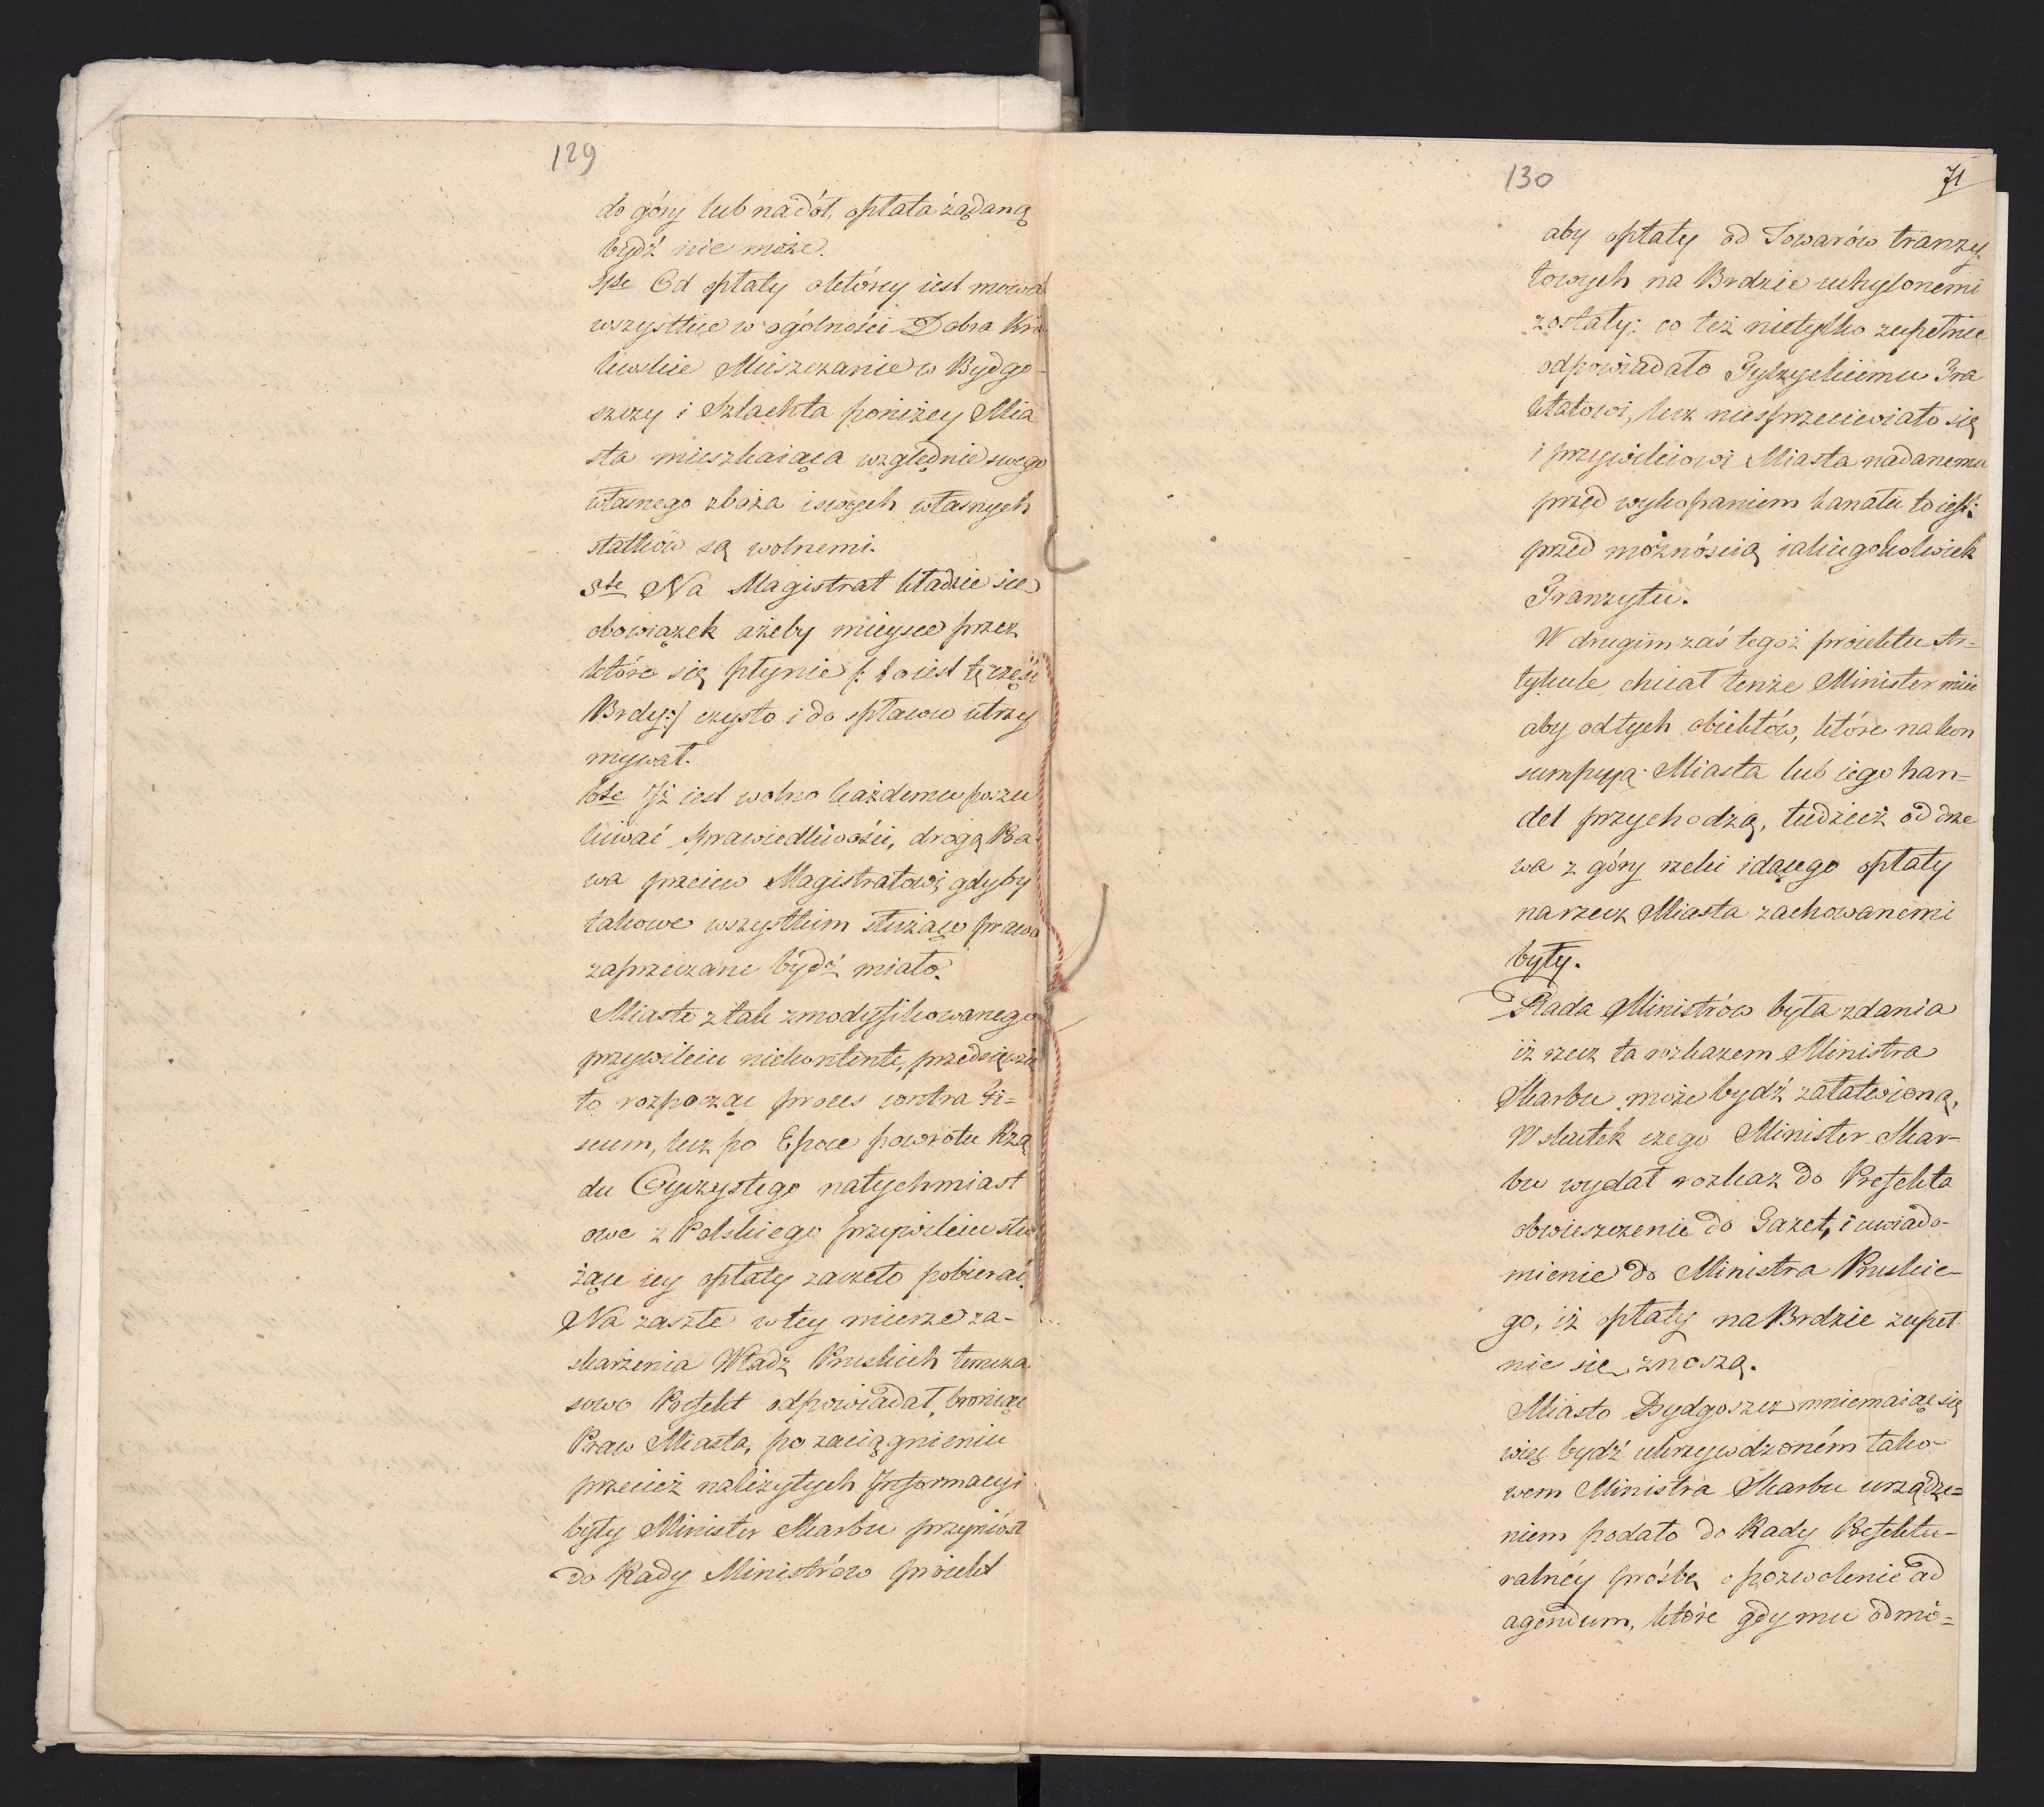 129
do góry lub nadół, opłata żądaną
bydź nie może.
Od opłaty o którey iest mowa
wszystkie w ogólności Dobra Kró
lewskie Mieszczanie w Bydgo-
szczy i Szlachta poniżey Mia
sta mieszkaiąca względnie swego
własnego zboża i swych własnych
statków są wolnemi.
5te Na Magistrat kładzie się
obowiązek ażeby mieysce przez
które się płynie /: to iest tę część
Brdy :/ czysto i do spławu utrzy
mywał.
6te Iż iest wolno każdemu poszu
kiwać sprawiedliwości, drogą Pra
wa przeciw Magistratowi gdyby
takowe wszystkim służące prawo
zaprzeczane bydź miało.
Miasto z tak zmodyfikowanego
przywileiu niekontente, przedsięwzię
to rozpocząć proces contra Fi=
scum, lecz po Epoce powrotu Rzą
du Oyczystego natychmiast
owe z Polskiego przywileiu słu
żące iey opłaty zaczęto pobierać.
Na zaszłe w tey mierze za-
skarżenia Władz Pruskich tymcza
sowo Prefekt odpowiadał, broniąc
Praw Miasta, po zaciągnieniu
przecież należytych Informacyi
były Minister Skarbu przyniósł
do Rady Ministrów proiekt
130
71
aby opłaty od Towarów tranzy
towych na Brdzie uchylonemi
zostały: co też nietylko zupełnie
odpowiadało Tylzyckiemu Tra
ktatowi, lecz niesprzeciwiało się
i przywileiowi Miasta nadanemu
przed wykopaniem kanału to iest:
przed możnością iakiegokolwiek
Tranzytu.
W drugim zaś tegoż proiektu Ar=
tykule chciał tenże Minister mieć
aby od tych obiektów, które na kon
sumpcyą Miasta lub iego han=
del przychodzą, tudzież od drze
wa z góry rzeki idącego opłaty
na rzecz Miasta zachowanemi
były.
Rada Ministrów była zdania
iż rzecz ta rozkazem Ministra
Skarbu może bydź załatwioną,
W skutek czego Minister Skar-
bu wydał rozkaz do Prefekta
obwieszczenie do Gazet, i uwiado-
mienie do Ministra Pruskie-
go, iż opłaty na Brdzie zupeł
nie się znoszą.
Miasto Bydgoszcz mniemaiąc się
więc bydź ukrzywdzoném tako-
wem Ministra Skarbu urządze=
niem podało do Rady Prefektu-
ralnéy prośbę o pozwolenie ad
agendum, które gdy mu odmó=